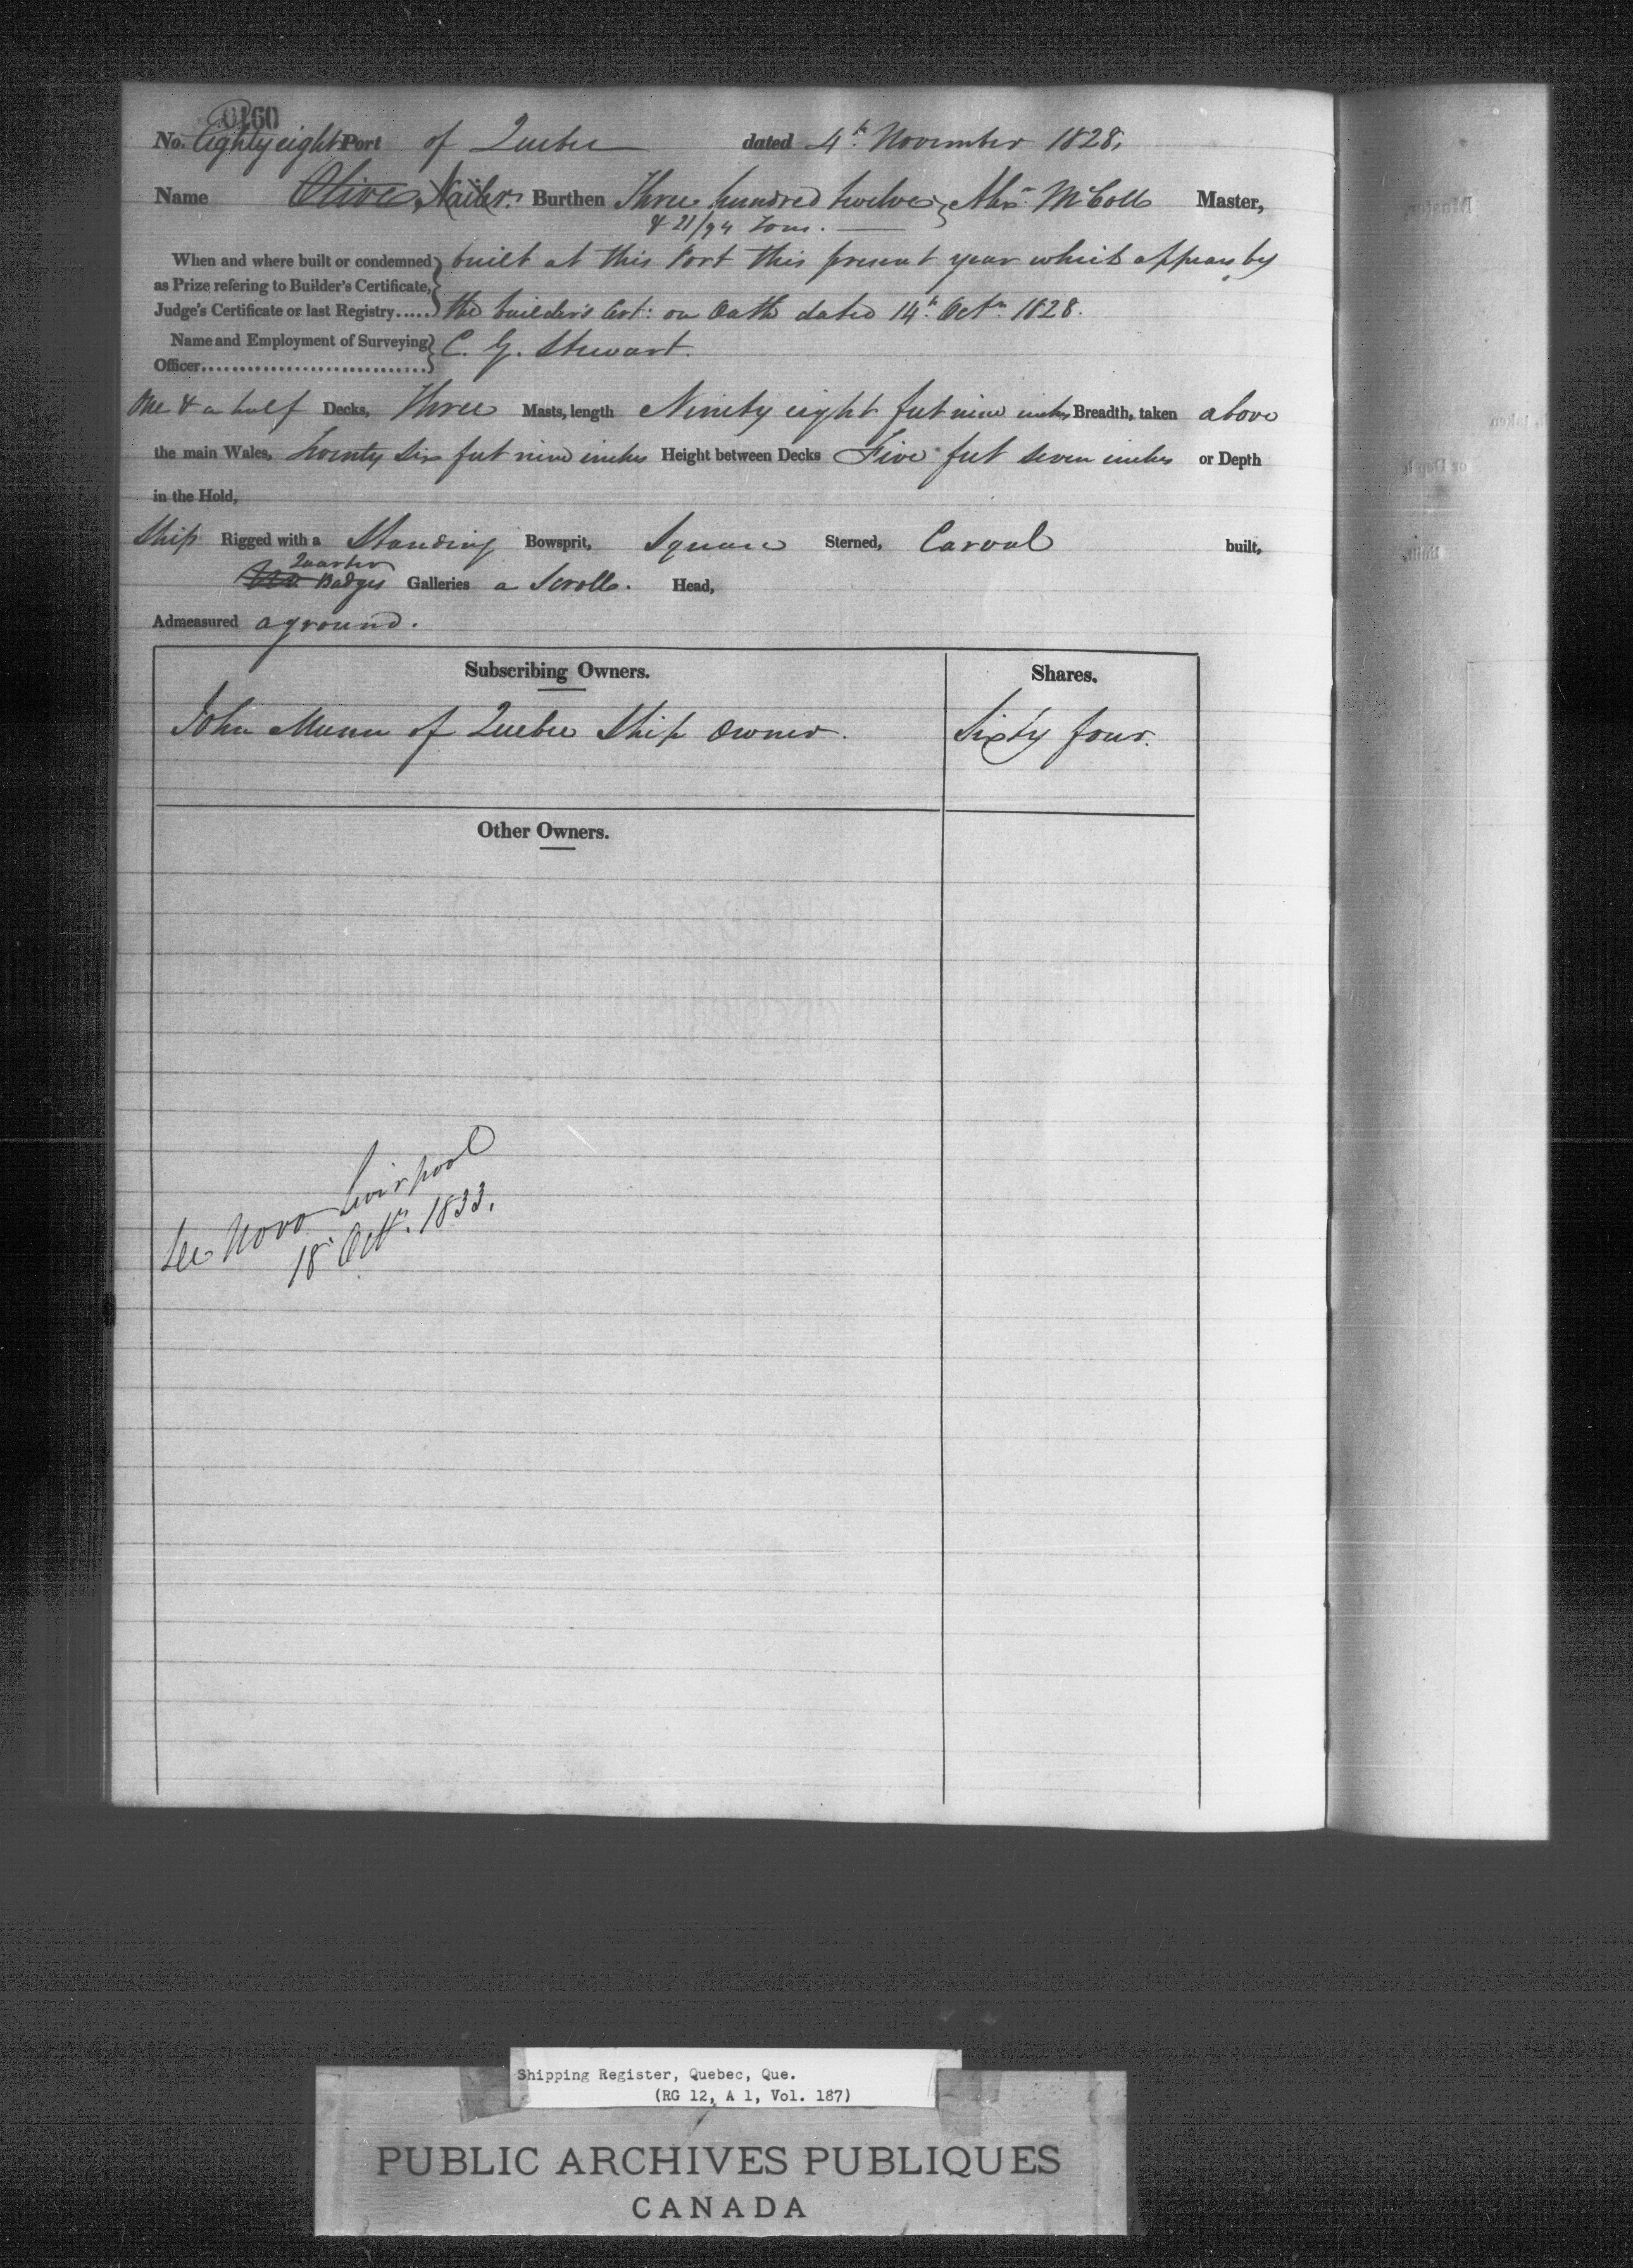 0160
No. Eighty eight Port of Quebec dated 4th November 1828.
Name Olive Burthen Three hundred twelve Alexr McColl Master,
& 21/94 Tons.
When and where built or condemned as Prize refering to Builder's Certificate, Judge's Certificate or last Registry..... built at this Port this present year which appears by
the builder's Cert: on Oath dated 14th Octr 1828.
Name and Employment of Surveying Officer C. G. Stewart.
One & a half Decks, Three Masts, length Ninety eight feet nine inches Breadth, taken above
the main Wales, Twenty Six feet nine inches Height between Decks Five feet seven inches or Depth
in the Hold,
Ship Rigged with a Standing Bowsprit, Square Sterned, Carvel built,
Quarter
Badges Galleries a Scroll. Head,
Admeasured aground.
Subscribing Owners. Shares.
John Munn of Quebec Ship Owner. Sixty four.
Other Owners.
See Novo Liverpool
18 Octr. 1833.
Shipping Register, Quebec, Que.
(RG 12, A 1, Vol. 187)
PUBLIC ARCHIVES PUBLIQUES
CANADA